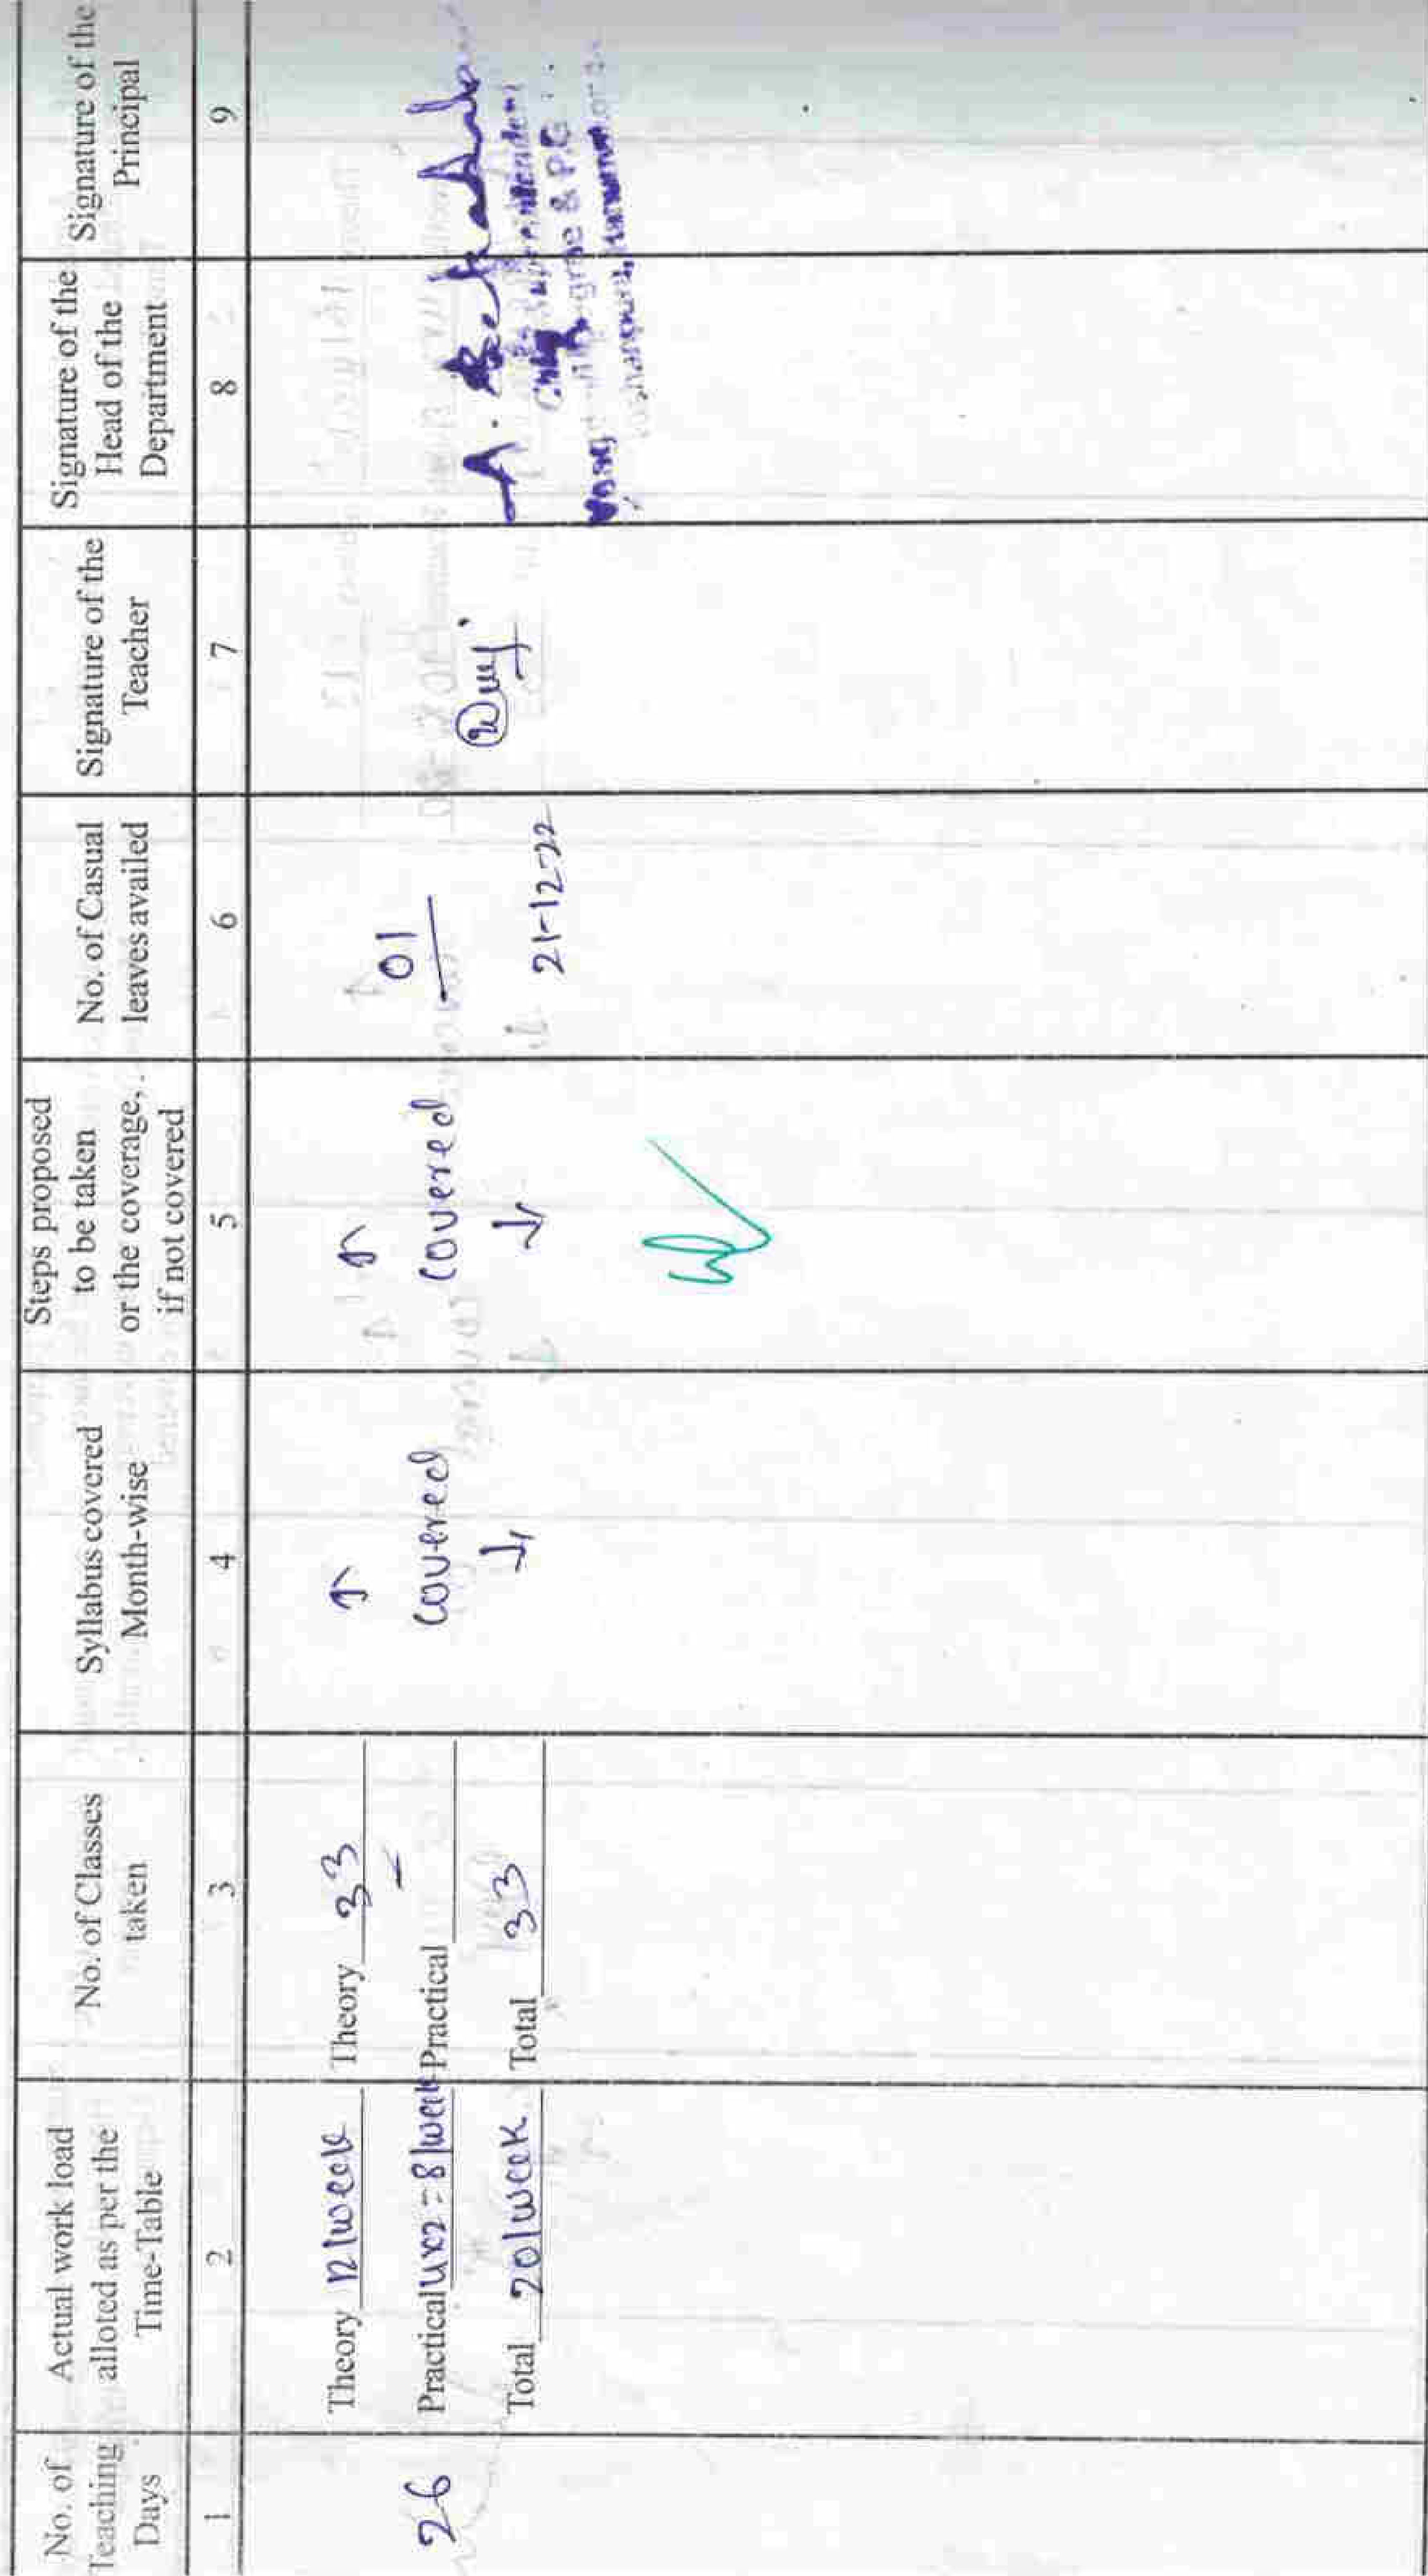 No. of
Teaching
Days
Actual work load
alloted as per the
Time-Table
No. of Classes
taken
Syllabus covered
Month-wise
Steps proposed
to be taken
or the coverage,
if not covered
No. of Casual
leaves availed
Signature of the
Teacher
Signature of the
Head of the
Department
Signature of the
Principal
1
2
3
4
5
6
7
8
9
26
Theory 12/week
Practical 4x2=8/week
Total 20/week
Theory 33
Practical -
Total 33
↑
covered
↓
↑
covered
↓
01
21-12-22
& P.G